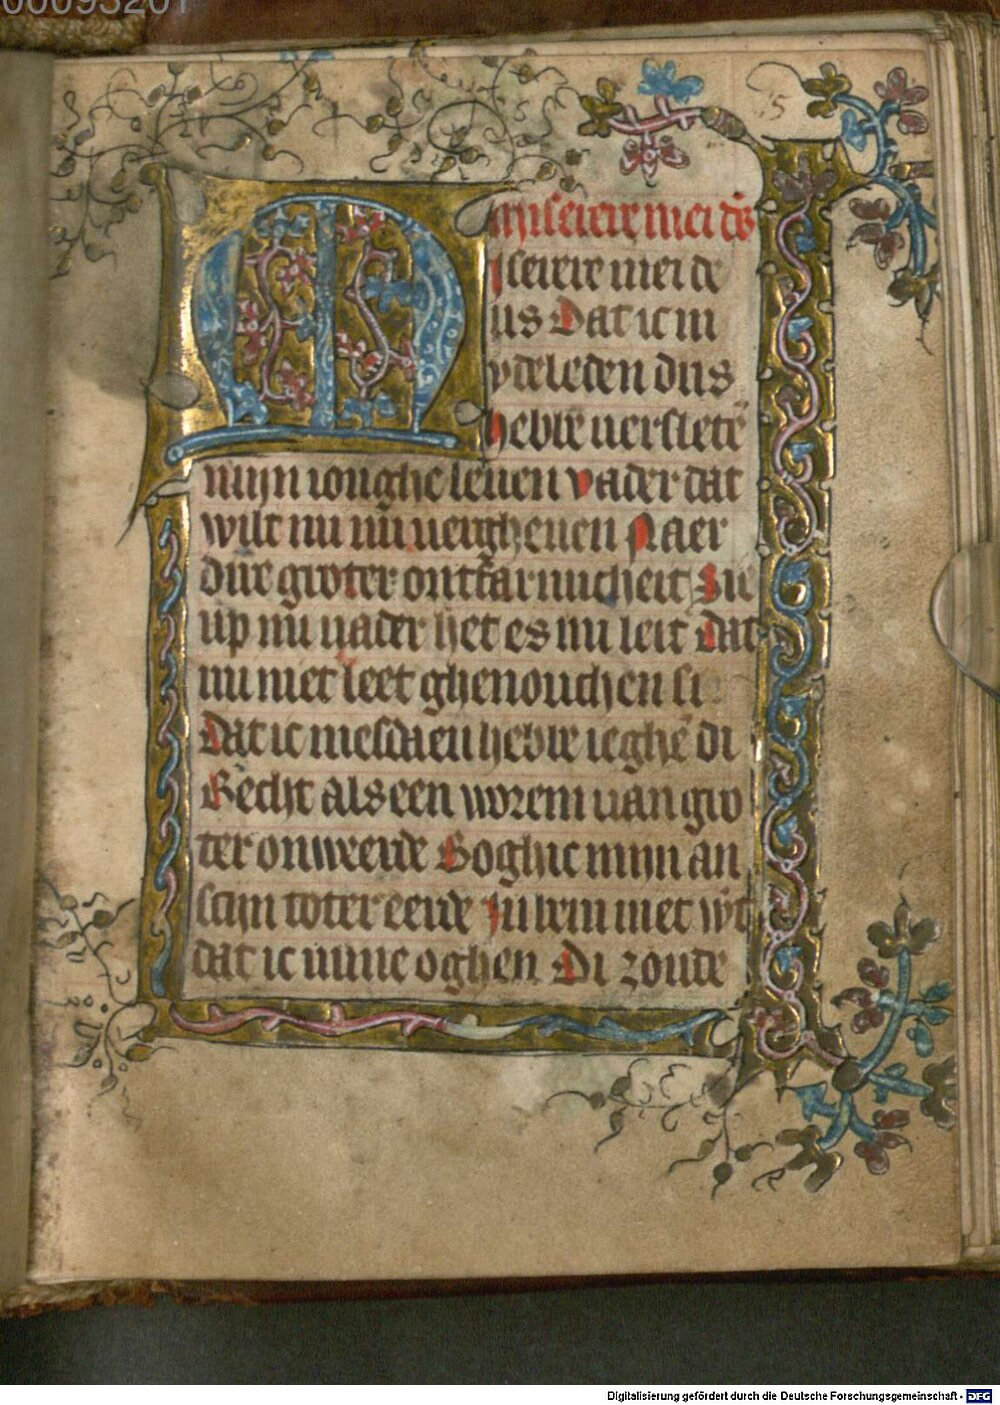 00095201
35
Miserere mei de͂s
Miserere mei de
us Dat ic in
ydeleden dus
hebbe versletē
mijn ionghe leuen vader dat
wilt nu mi uergheuen Naer
dijnre groter ontfarmicheit Zie
up mi uader het es mi leit dat
mi niet leet ghenouch en si
Dat ic mesdaen hebbe ieghē di
Recht als een worem uan gro
ter onweerde Boghic mijn an
scijn toter eerde In bem niet wert
dat ic mine oghen Di zoude
Digitalisierung gefördert durch die Deutsche Forschungsgemeinschaft - DFG